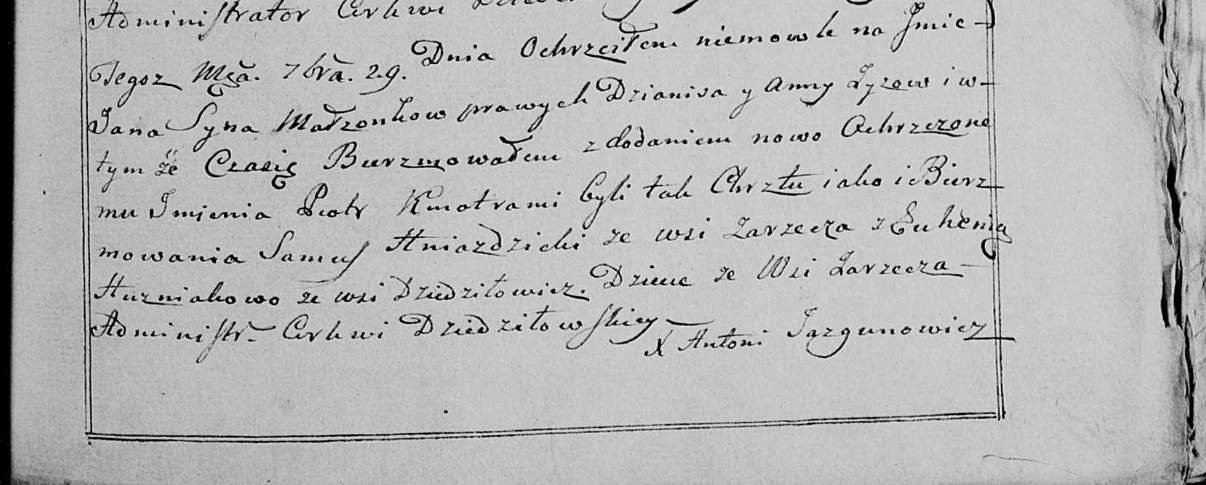 Administrator Cerkwi
Tegoż Mca. 7bra. 29. Dnia Ochrzciłem niemowle na Jmie
Jana Syna Małzonkow prawych Dzianisa y Anny Zyzow i w
tym że Czasię Bierzmowałem z dodaniem nowo Ochrzczone
mu Jmienia Piotr Kmotrami byli tak Chrztu iako i Bierz
mowania Samuś Hniazdzicki ze wsi Zarzecza z Euhenią
Huzniakowo ze wsi Dziedziłowicz. Dziecie ze Wsi Zarzecza
Administr. Cerkwi Dziedziłowskiey X Antoni Jazgunowicz